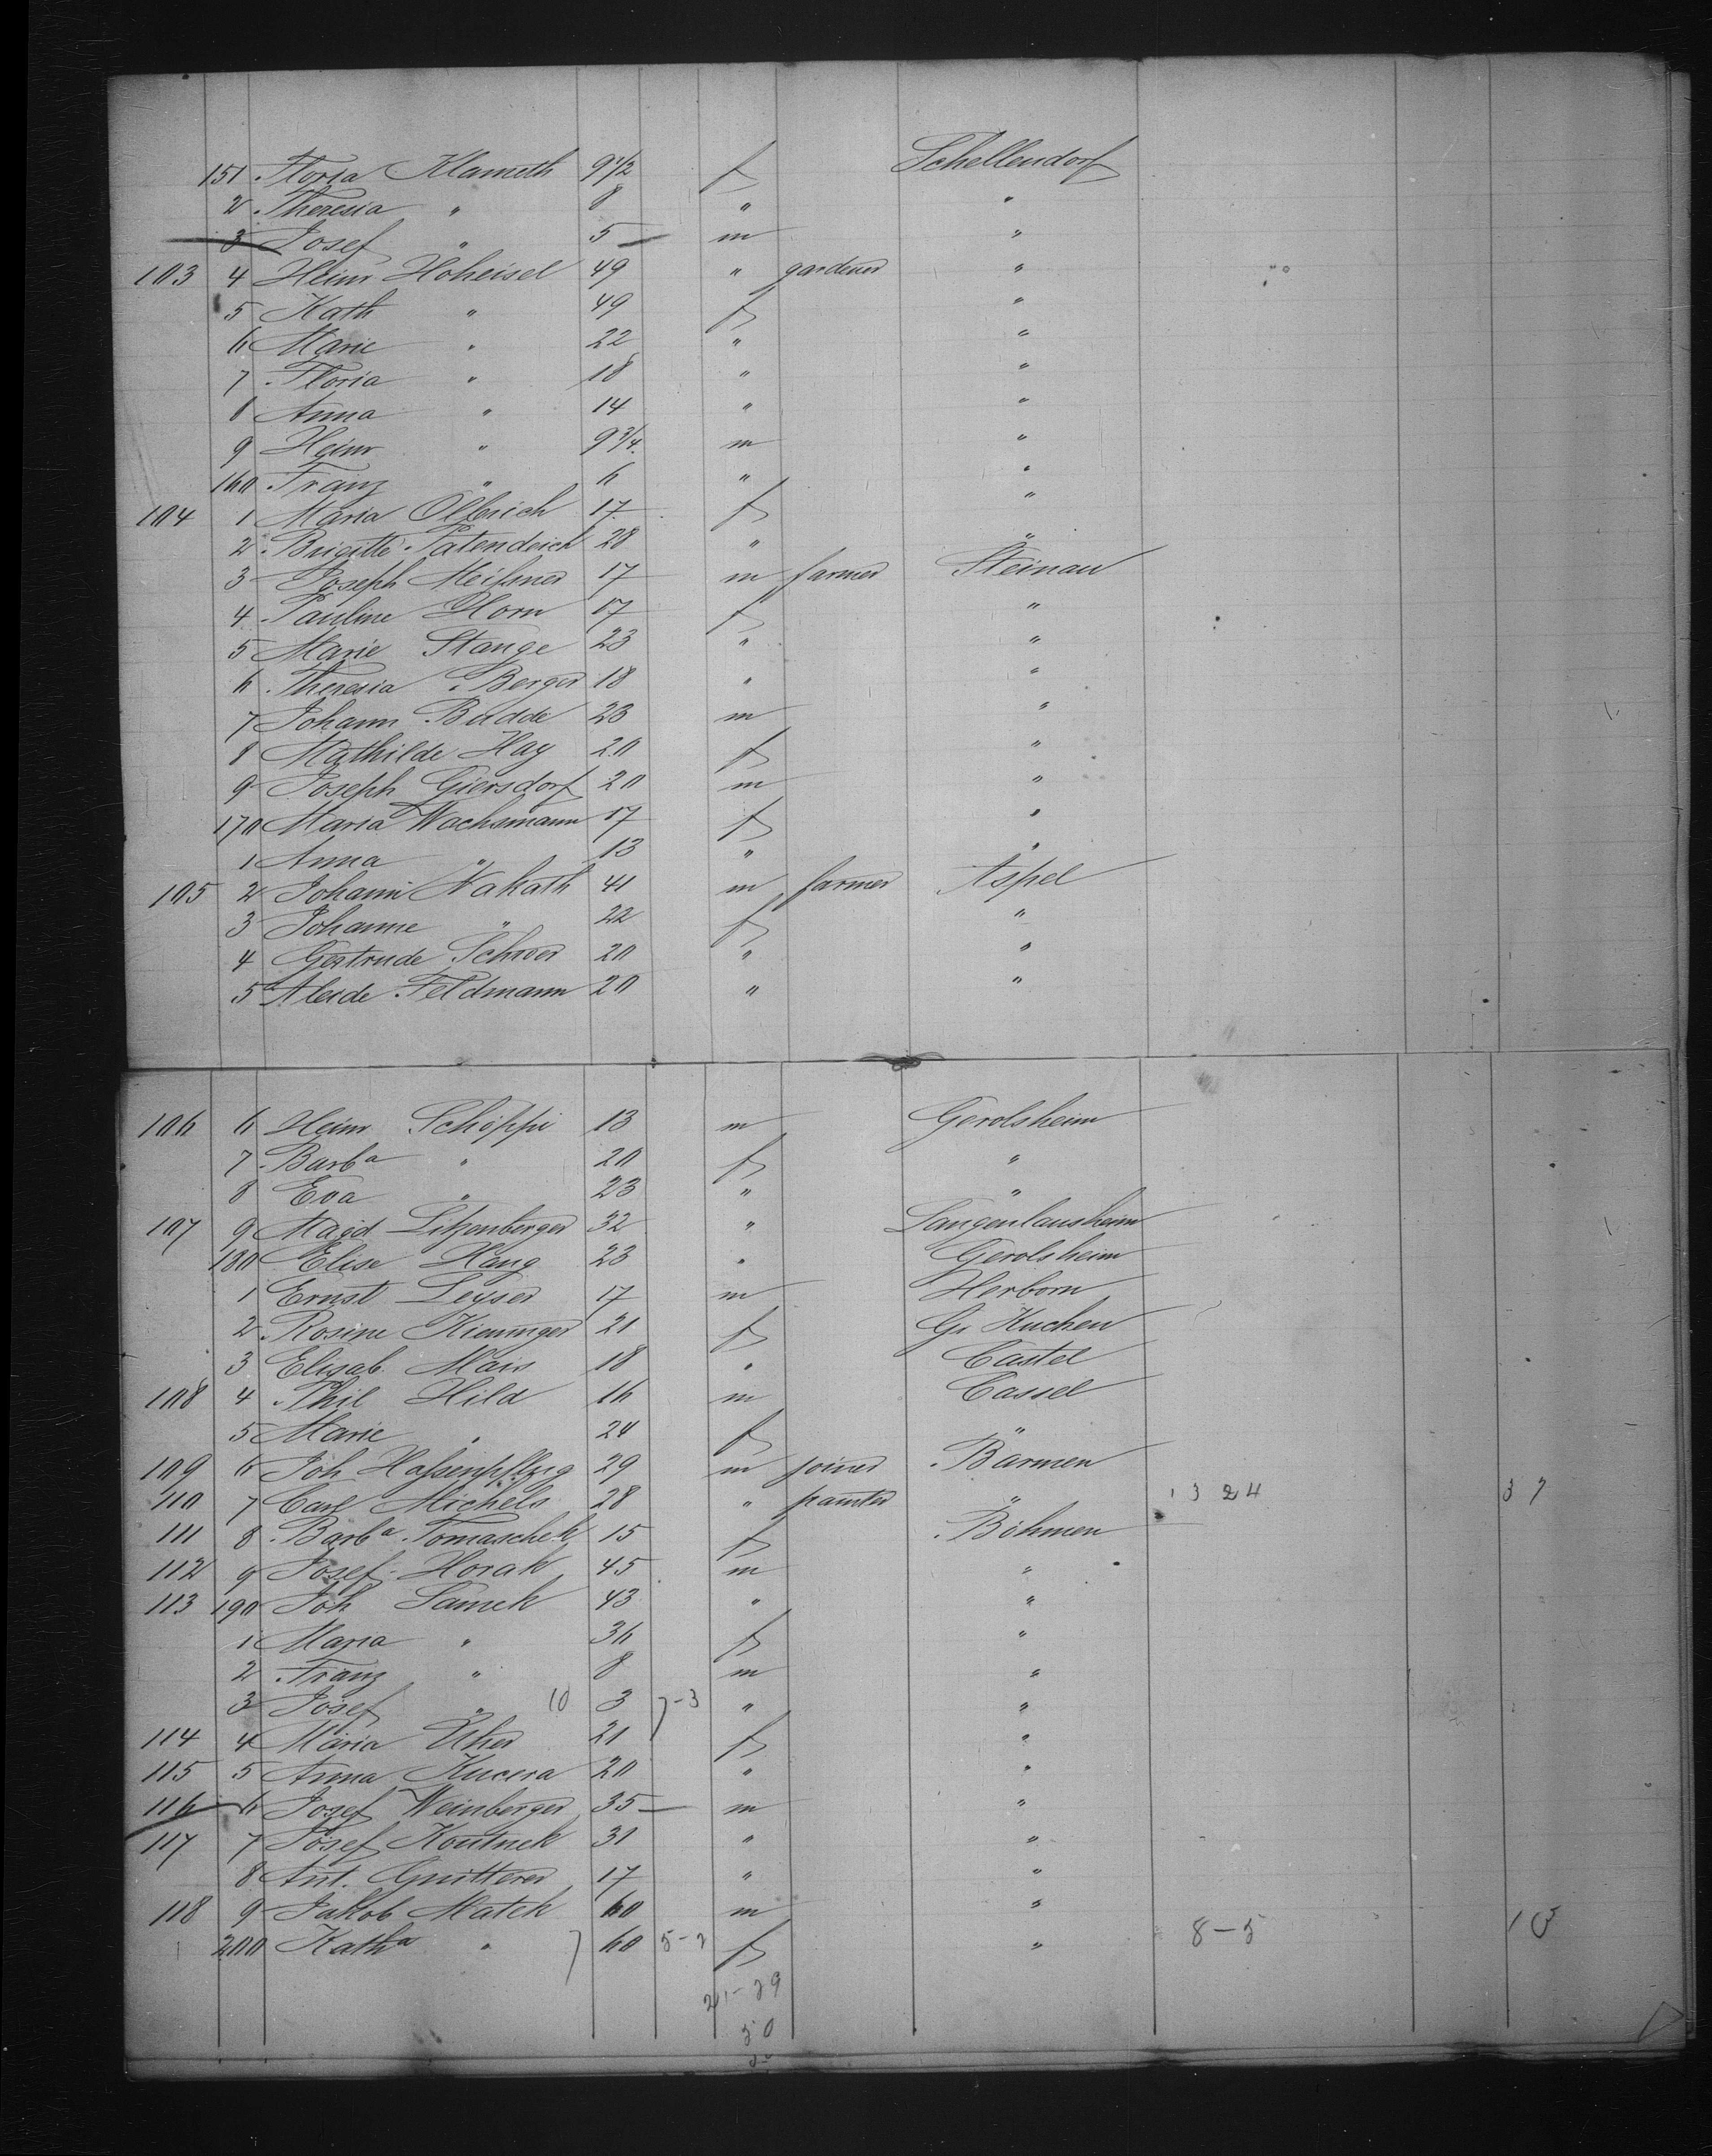 151 Floria Klameth 9 1/2 f Schellendorf
2 Theresia " 8 " "
3 Josef " 5 m "
103 4 Heinr Hoheisel 49 " gardener "
5 Kath " 49 f "
6 Marie " 22 " "
7 Floria " 18 " "
8 Anna " 14 " "
9 Heinr " 9 3/4 m "
160 Franz " 6 " "
104 1 Maria Olbrich 17 f "
2 Brigitte Patendeich 28 " "
3 Joseph Meissner 17 m farmer Steinau
4 Pauline Horn 17 f "
5 Marie Stange 23 " "
6 Theresia Berger 18 " "
7 Johann Budde 23 m "
8 Mathilde Hay 20 f "
9 Joseph Giersdorf 20 m "
170 Maria Wachsmann 17 f "
1 Anna " 13 " "
105 2 Johann Nakath 41 m farmer Aspel
3 Johanne " 22 f "
4 Gertrude Schroer 20 " "
5 Aleide Feldmann 20 " "
106 6 Heinr Schöppi 13 m Gerolsheim
7 Barbª " 20 f "
8 Eva " 23 " "
107 9 Magd Litzenberger 32 " Langenlausheim
180 Elise Haug 23 " Gerolsheim
1 Ernst Leyser 17 m Herborn
2 Rosine Kieninger 21 f Gr Kuchen
3 Elisab. Mais 18 " Castel
108 4 Phil Hild 16 m Cassel
5 Marie " 24 f "
109 6 Joh Hassenpflug 29 m joiner Barmen
110 7 Carl Michels 28 " painter " 13 24 37
111 8 Barbª Tomaschek 15 f Böhmen
112 9 Josef Horak 45 m "
113 190 Joh Samek 43 " "
1 Maria " 36 f "
2 Franz " 8 m "
3 Josef " 10 3 7-3 " "
114 4 Maria Uher 21 f "
115 5 Anna Kucera 20 " "
116 6 Josef Weinberger 35 m "
117 7 Josef Koutnek 31 " "
8 Ant. Gnitterer 17 " "
118 9 Jakob Matek 60 m "
200 Kathª " 7 60 5-2 f " 8-5 10
21-29
50